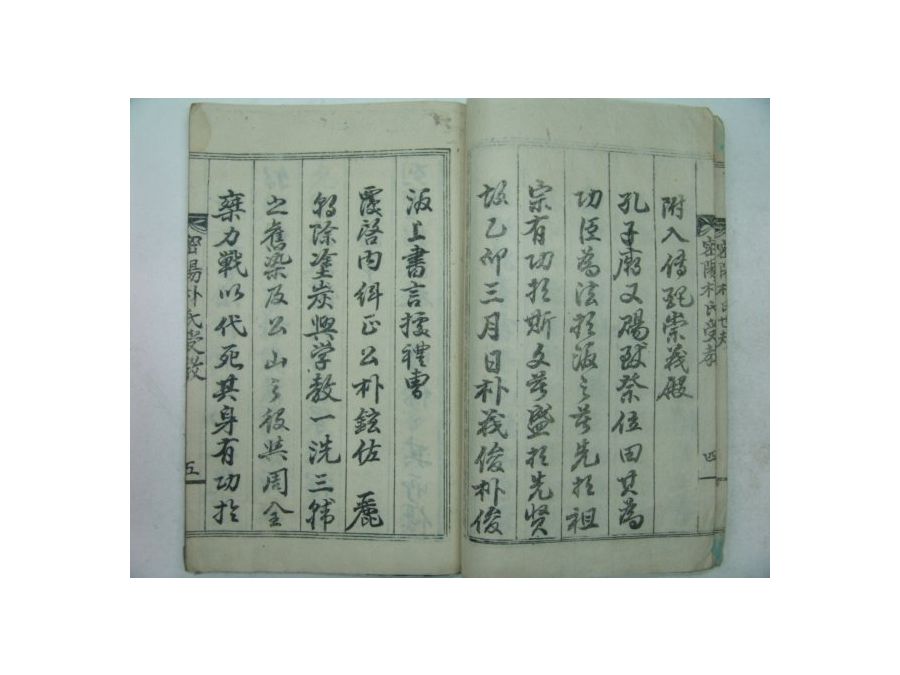 附入傅 崇義殿
孔子廟又賜 祭位田其為
功臣為法於後之 先於祖
宗有功於斯文 盛於先賢
故乙卯三月日朴義俊朴俊
上書言據禮曹
覆啓內糾正公朴鉉佐 麗
朝除塗炭興学教一洗三韓
之舊染及公山之役與周全
棄力戰以代死其身有功於
密陽朴氏受教
五
密陽朴氏受教
四